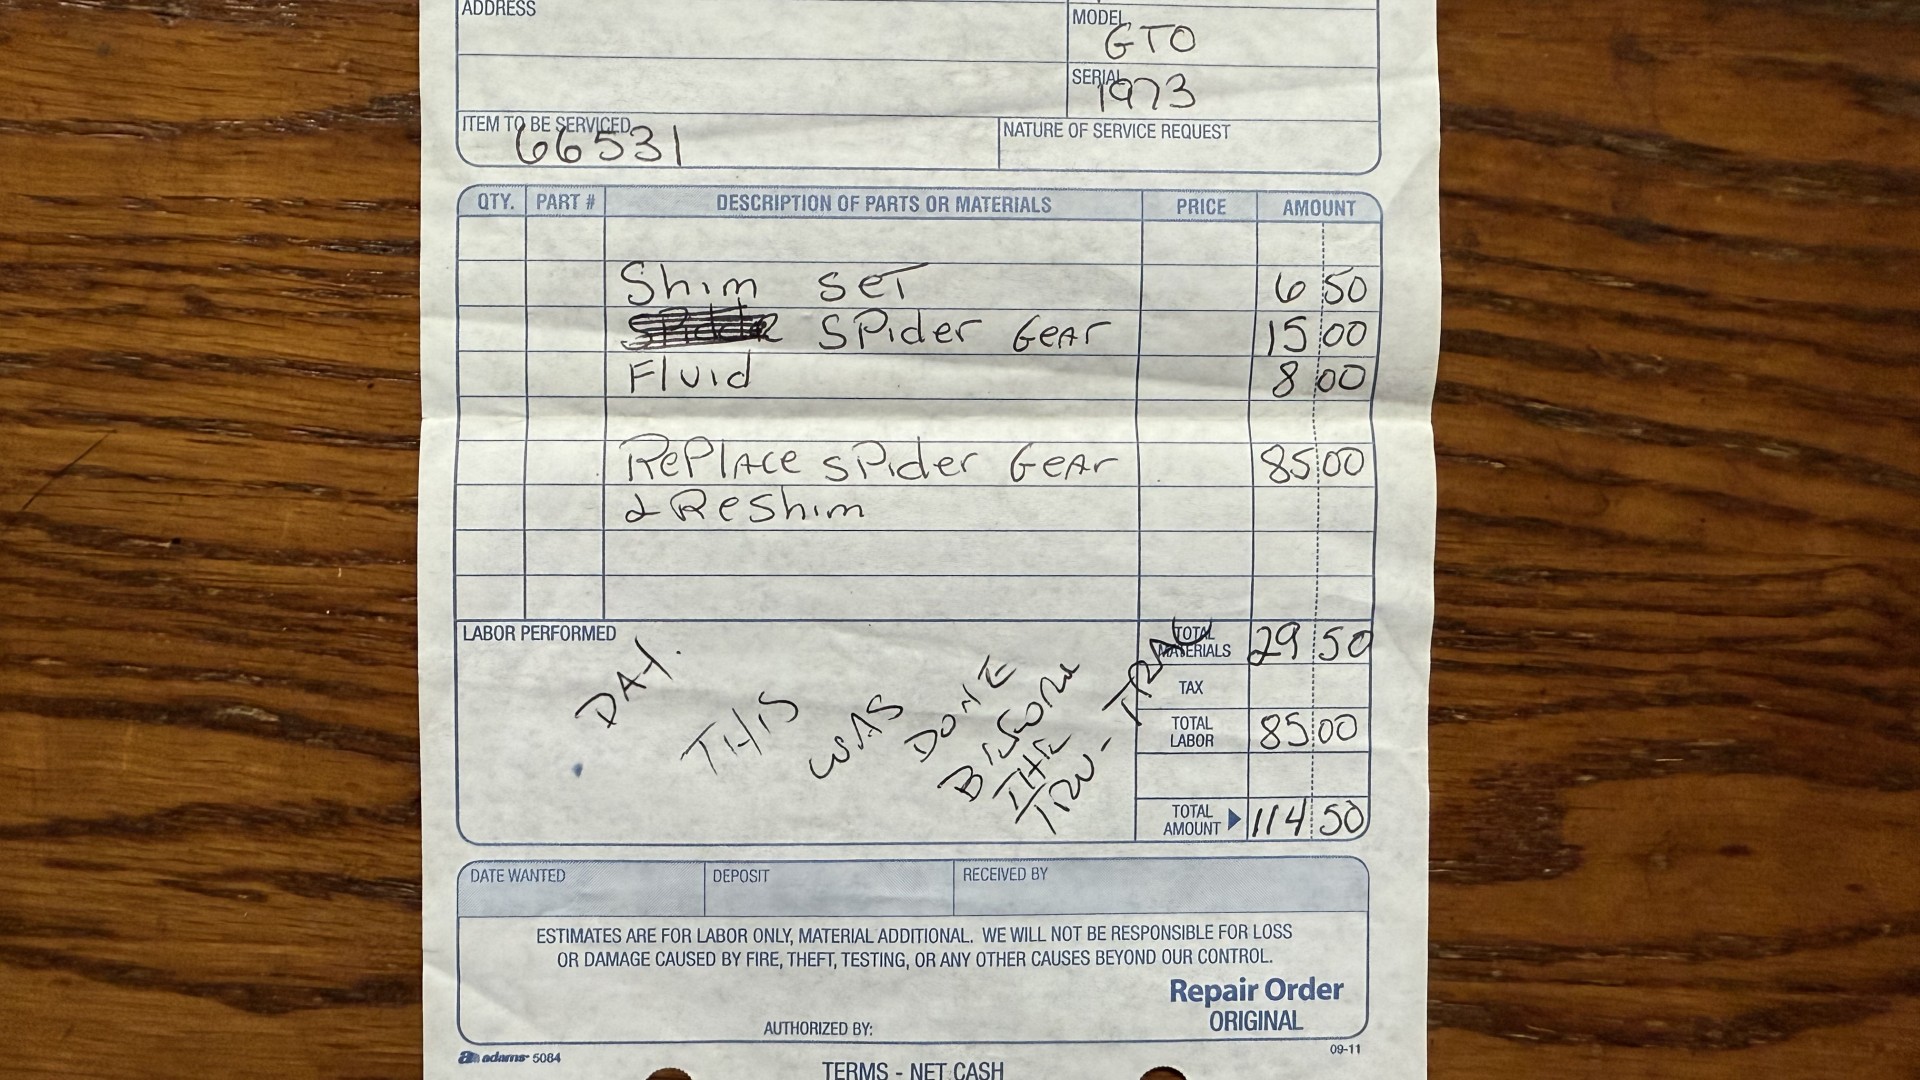 ADDRESS
MODEL
GTO
SERIAL
1973
ITEM TO BE SERVICED
66531
NATURE OF SERVICE REQUEST
QTY. PART # DESCRIPTION OF PARTS OR MATERIALS PRICE AMOUNT
Shim SET 6 50
SPider GeAr 15 00
Fluid 8 00
RePlAce sPider GeAr 85 00
& Reshim
LABOR PERFORMED
DAY.
THIS
WAS
DONE
BEFORE
THE
TRU-TRAC
TOTAL MATERIALS 29 50
TAX
TOTAL LABOR 85 00
TOTAL AMOUNT 114 50
DATE WANTED DEPOSIT RECEIVED BY
ESTIMATES ARE FOR LABOR ONLY, MATERIAL ADDITIONAL. WE WILL NOT BE RESPONSIBLE FOR LOSS
OR DAMAGE CAUSED BY FIRE, THEFT, TESTING, OR ANY OTHER CAUSES BEYOND OUR CONTROL.
Repair Order
ORIGINAL
AUTHORIZED BY:
adams 5084
09-11
TERMS - NET CASH